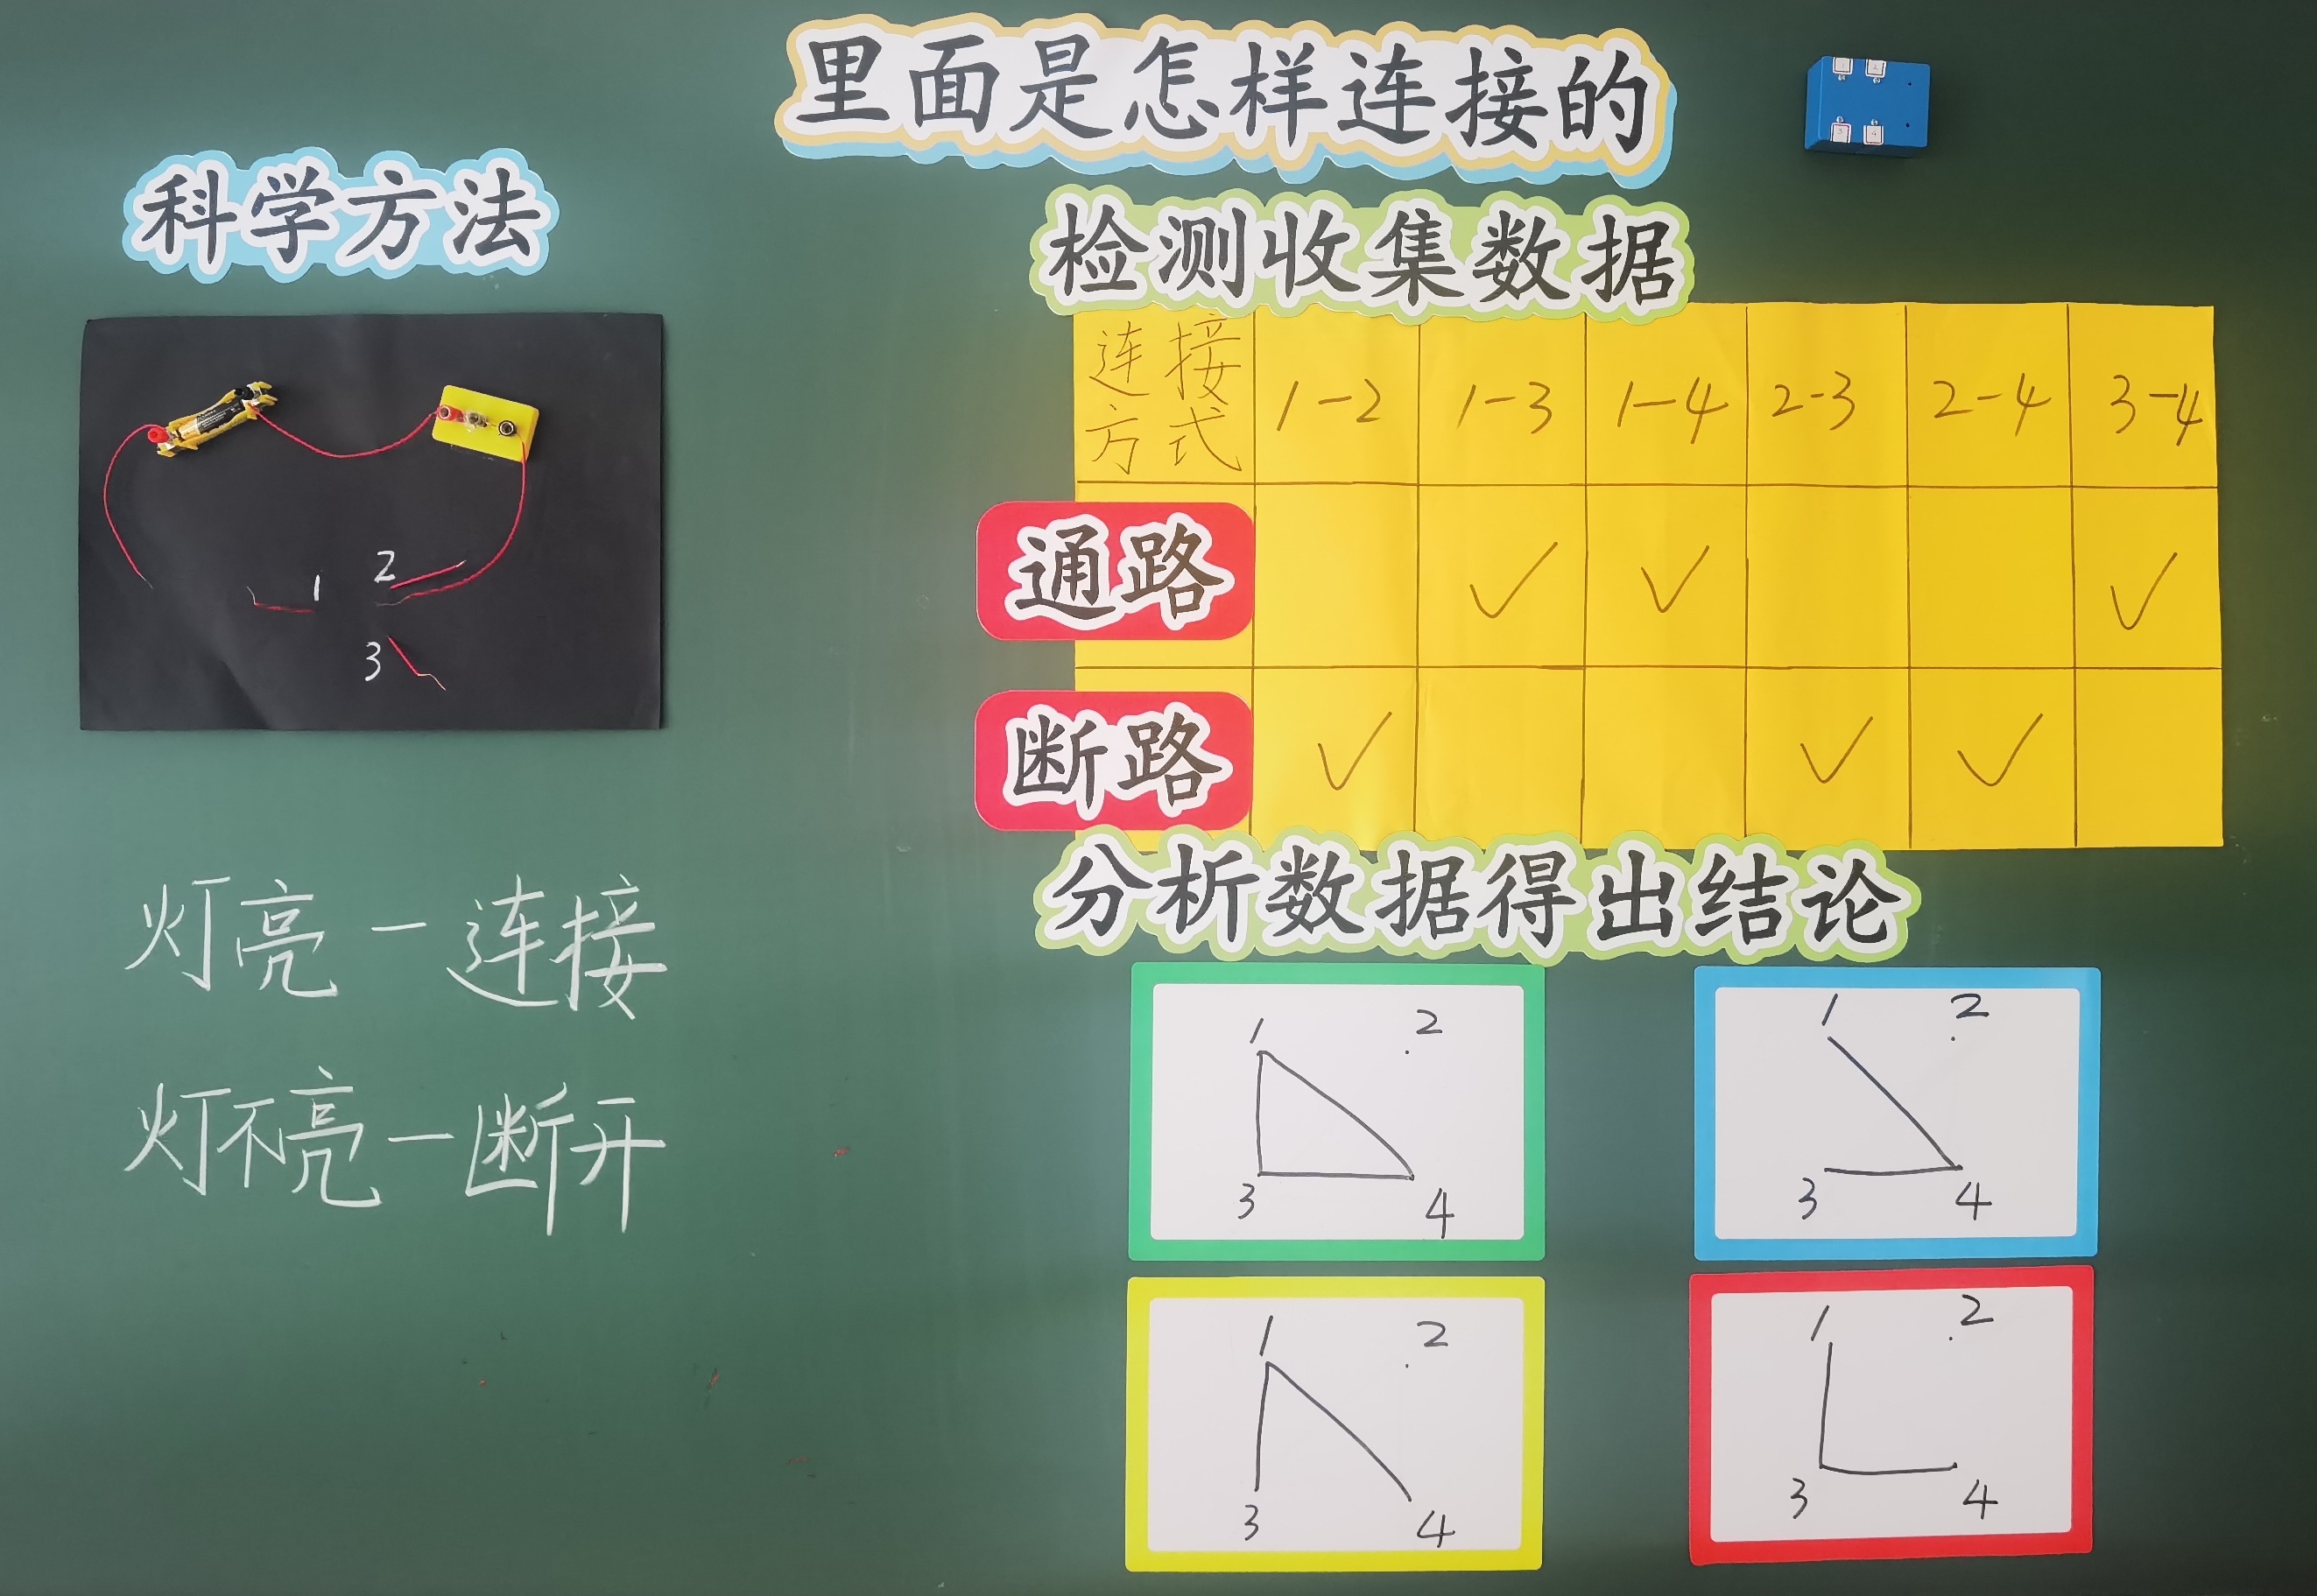 里面是怎样连接的
1 2
3 4
科学方法
1
2
3
灯亮－连接
灯不亮－断开
检测收集数据
连接方式 1-2 1-3 1-4 2-3 2-4 3-4
通路 ✓ ✓ ✓
断路 ✓ ✓ ✓
分析数据得出结论
1 2
3 4
1 2
3 4
1 2
3 4
1 2
3 4